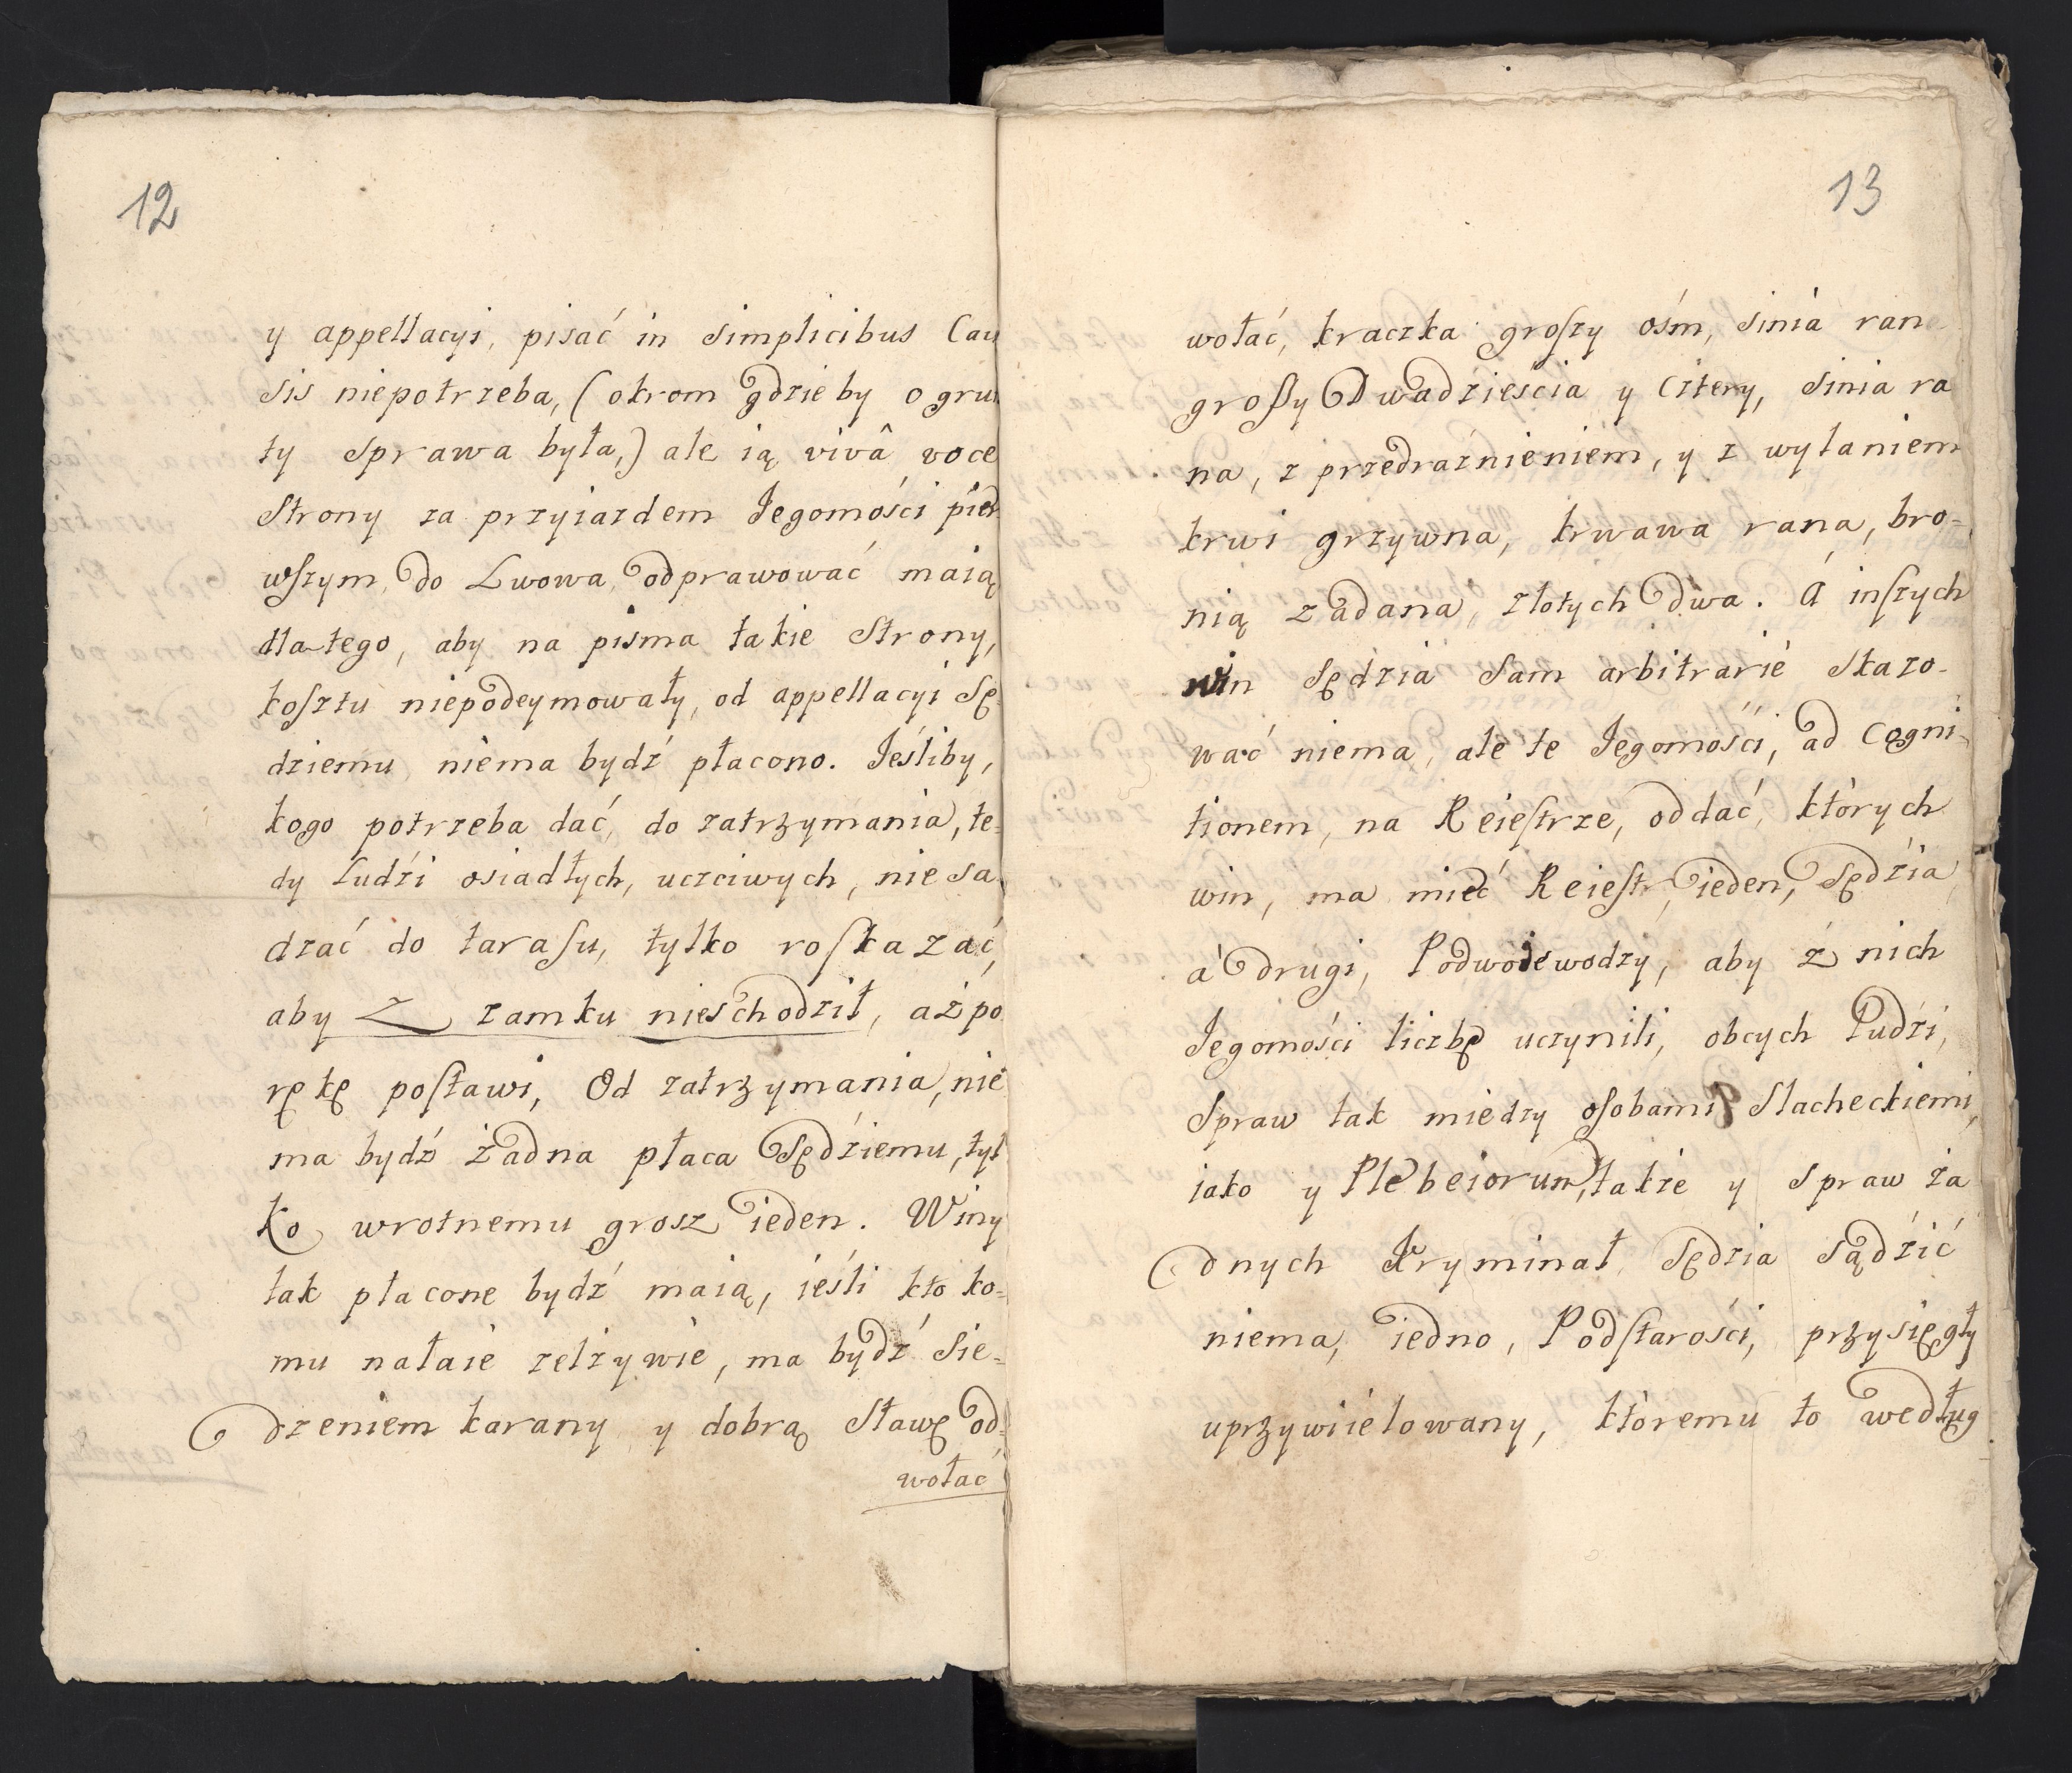 12
y appellacyi, pisać in simplicibus Cau
sis niepotrzeba, (okrom gdzieby o grun
ty sprawa była,) ale ią vivâ voce
Strony za przyiazdem Jegomości pier
wszym, do Lwowa, odprawować maią
dlatego, aby na pisma takie Strony,
kosztu niepodeymowały, od appellacyi Sę=
dziemu, niema bydź płacono. Jeśliby,
kogo potrzeba dać, do zatrzymania, te=
dy ludźi osiadłych, uczciwych, nie sa
dzać do tarasu, tylko roskazać,
aby Z zamku nieschodził, aż po
rękę postawi, Od zatrzymania, nie
ma bydź żadna płaca Sędźiemu, tyl
ko wrotnemu grosz ieden. Winy
tak płacone bydź maią, ieśli kto ko=
mu nałaie zelżywie, ma bydź Sie=
dzeniem karany y dobrą Sławę od=
wołać
13
wołać, kraczka groszy ośm, sinia rana
groszy Dwadzieścia y Cztery, sinia ra
na, z przedraźnieniem, y z wylaniem
krwi grzywna, krwawa rana, bro=
nią zadana, złotych dwa. A inszych
win Sędzia sam arbitrarie skazo-
wać niema, ale te Jegomości, ad Cogni-
tionem, na Reiestrze, oddać, których
win, ma mieć Reiestr, ieden, Sędźia
a drugi, Podwoiewodzy, aby z nich
Jegomości liczbę uczynili, obcych Ludźi,
Spraw tak miedzy osobami Slacheckiemi,
iako y Plebeiorum, takie y Spraw ża
dnych Kryminał Sędzia sądźić
niema, iedno, Podstarości, przysięgły
uprzywiielowany, któremu to według